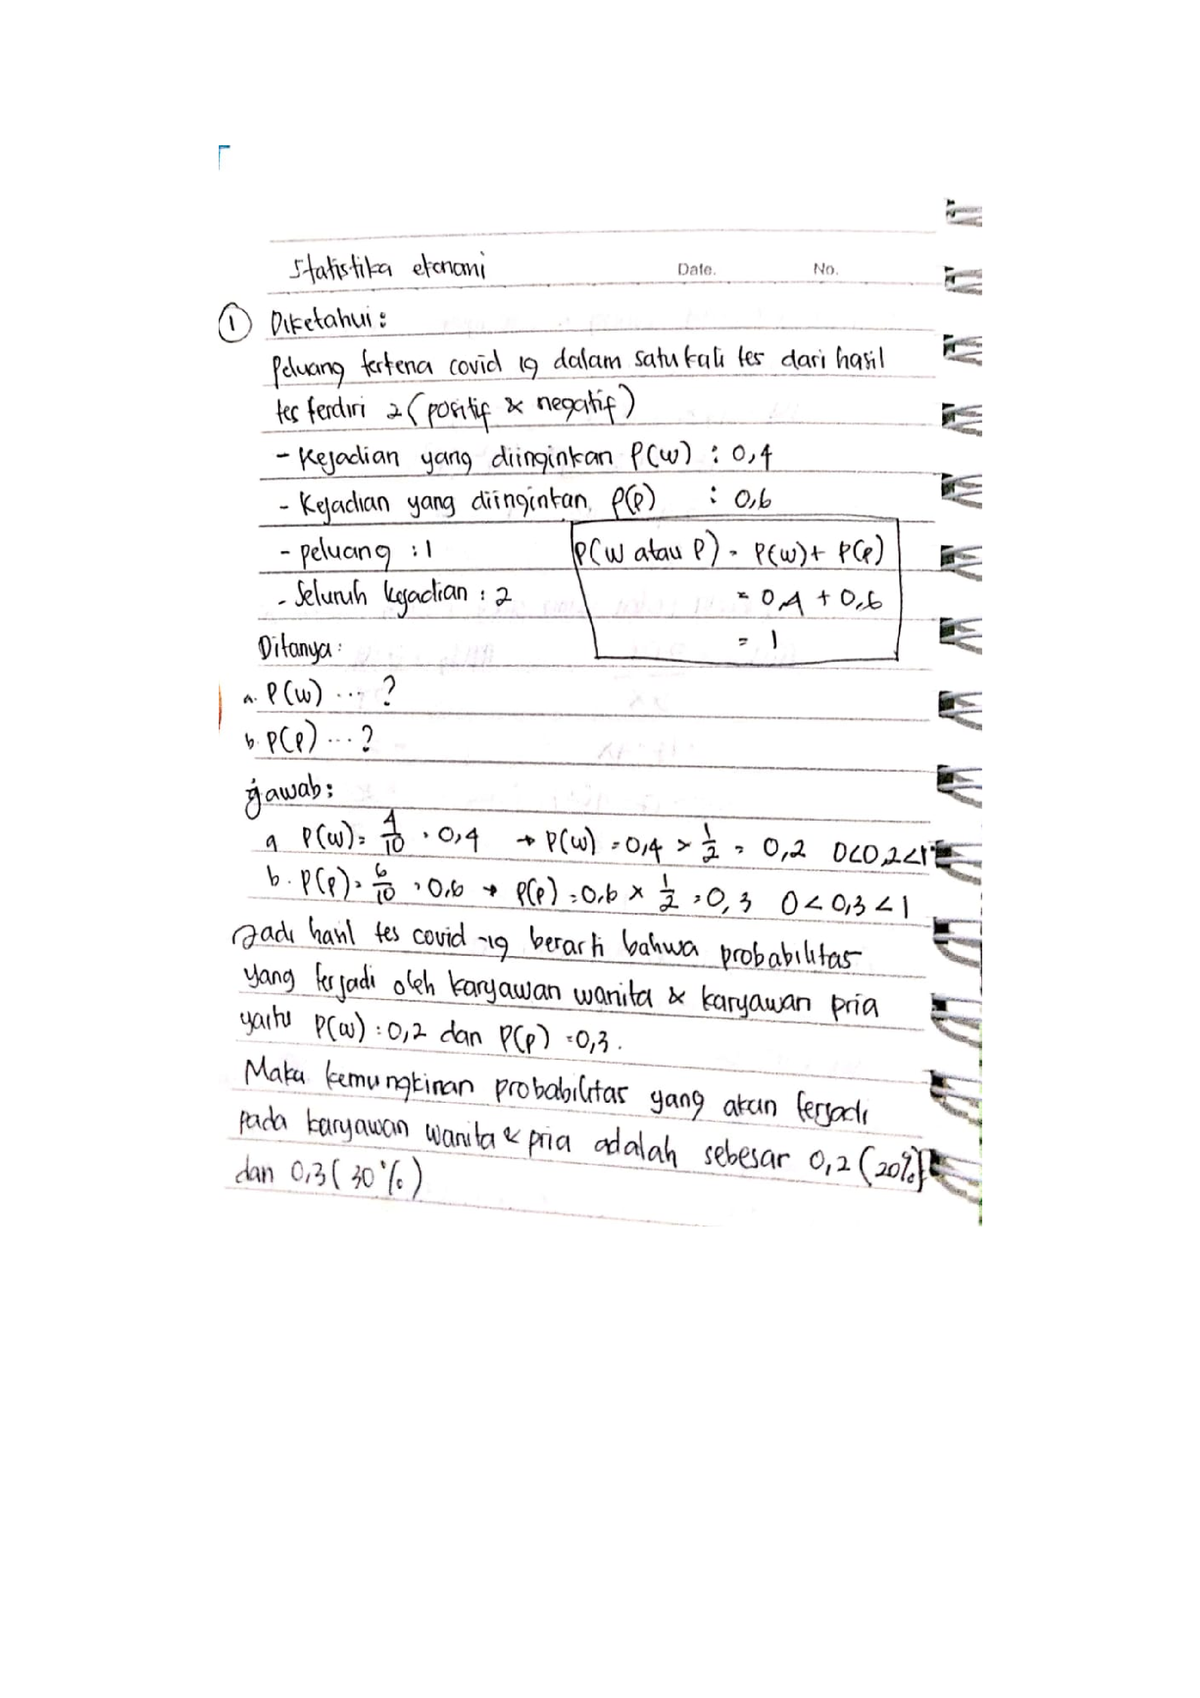 Statistika ekonomi
Date. No.
1 Diketahui :
Peluang terkena covid 19 dalam satu kali tes dari hasil
tes terdiri 2 (positif & negatif)
- Kejadian yang diinginkan P(w) : 0,4
- Kejadian yang diinginkan P(P) : 0,6
- peluang : 1
- Seluruh kejadian : 2
P(W atau P) = P(w) + P(P)
= 0,4 + 0,6
= 1
Ditanya :
a. P(w) ... ?
b. P(P) ... ?
jawab :
a P(w) = 4/10 = 0,4 → P(w) = 0,4 × 1/2 = 0,2 0<0,2<1
b. P(P) = 6/10 = 0,6 → P(P) = 0,6 × 1/2 = 0,3 0<0,3<1
Jadi hasil tes covid -19 berarti bahwa probabilitas
yang terjadi oleh karyawan wanita & karyawan pria
yaitu P(w) : 0,2 dan P(P) = 0,3.
Maka kemungkinan probabilitas yang akan terjadi
pada karyawan wanita & pria adalah sebesar 0,2 (20%)
dan 0,3 (30%)